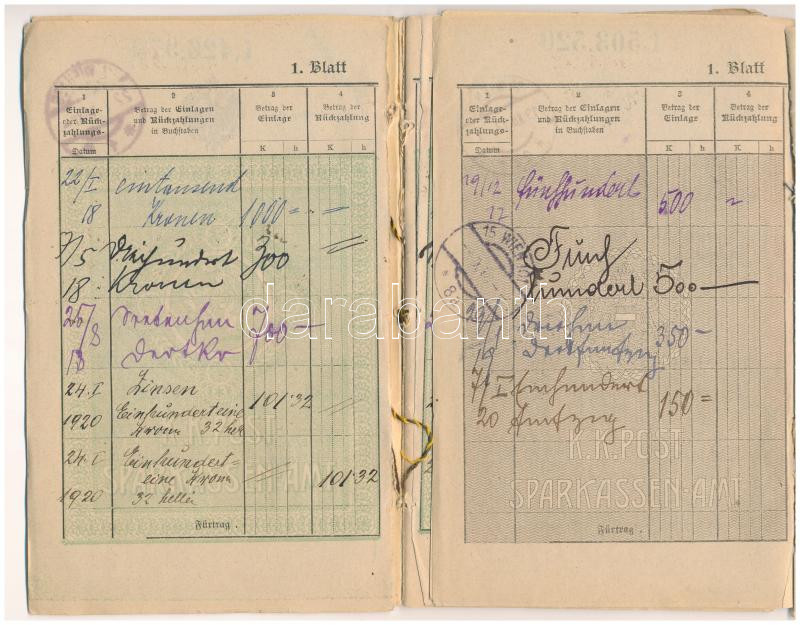 1. Blatt
1 2 3 4
Einlage- oder Rück- zahlungs-
Datum
Betrag der Einlagen und Rückzahlungen in Buchstaben
Betrag der Einlage
K h
Betrag der Rückzahlung
K h
22/I eintausend
18 Kronen 1000 = =
7/5 Dreihundert 300 =
18. Kronen
25/8 Siebenhun 700 —
18 dertKr
24. I Zinsen 101·32
1920 Einhunderteine Krone 32 hell
24. I Einhundert- eine Krone 101·32
1920 32 heller
K.K. POST
SPARKASSEN-AMT
Fürtrag .
1. Blatt
1 2 3 4
Einlage- oder Rück- zahlungs-
Datum
Betrag der Einlagen und Rückzahlungen in Buchstaben
Betrag der Einlage
K h
Betrag der Rückzahlung
K h
29/12 fünfhundert
17 500 =
15 WIEN
Fünf
hundert 500 —
350 —
18
7/I Einhundert 150 =
20 fünfzig
K.K. POST
SPARKASSEN-AMT
Fürtrag .
darabanth